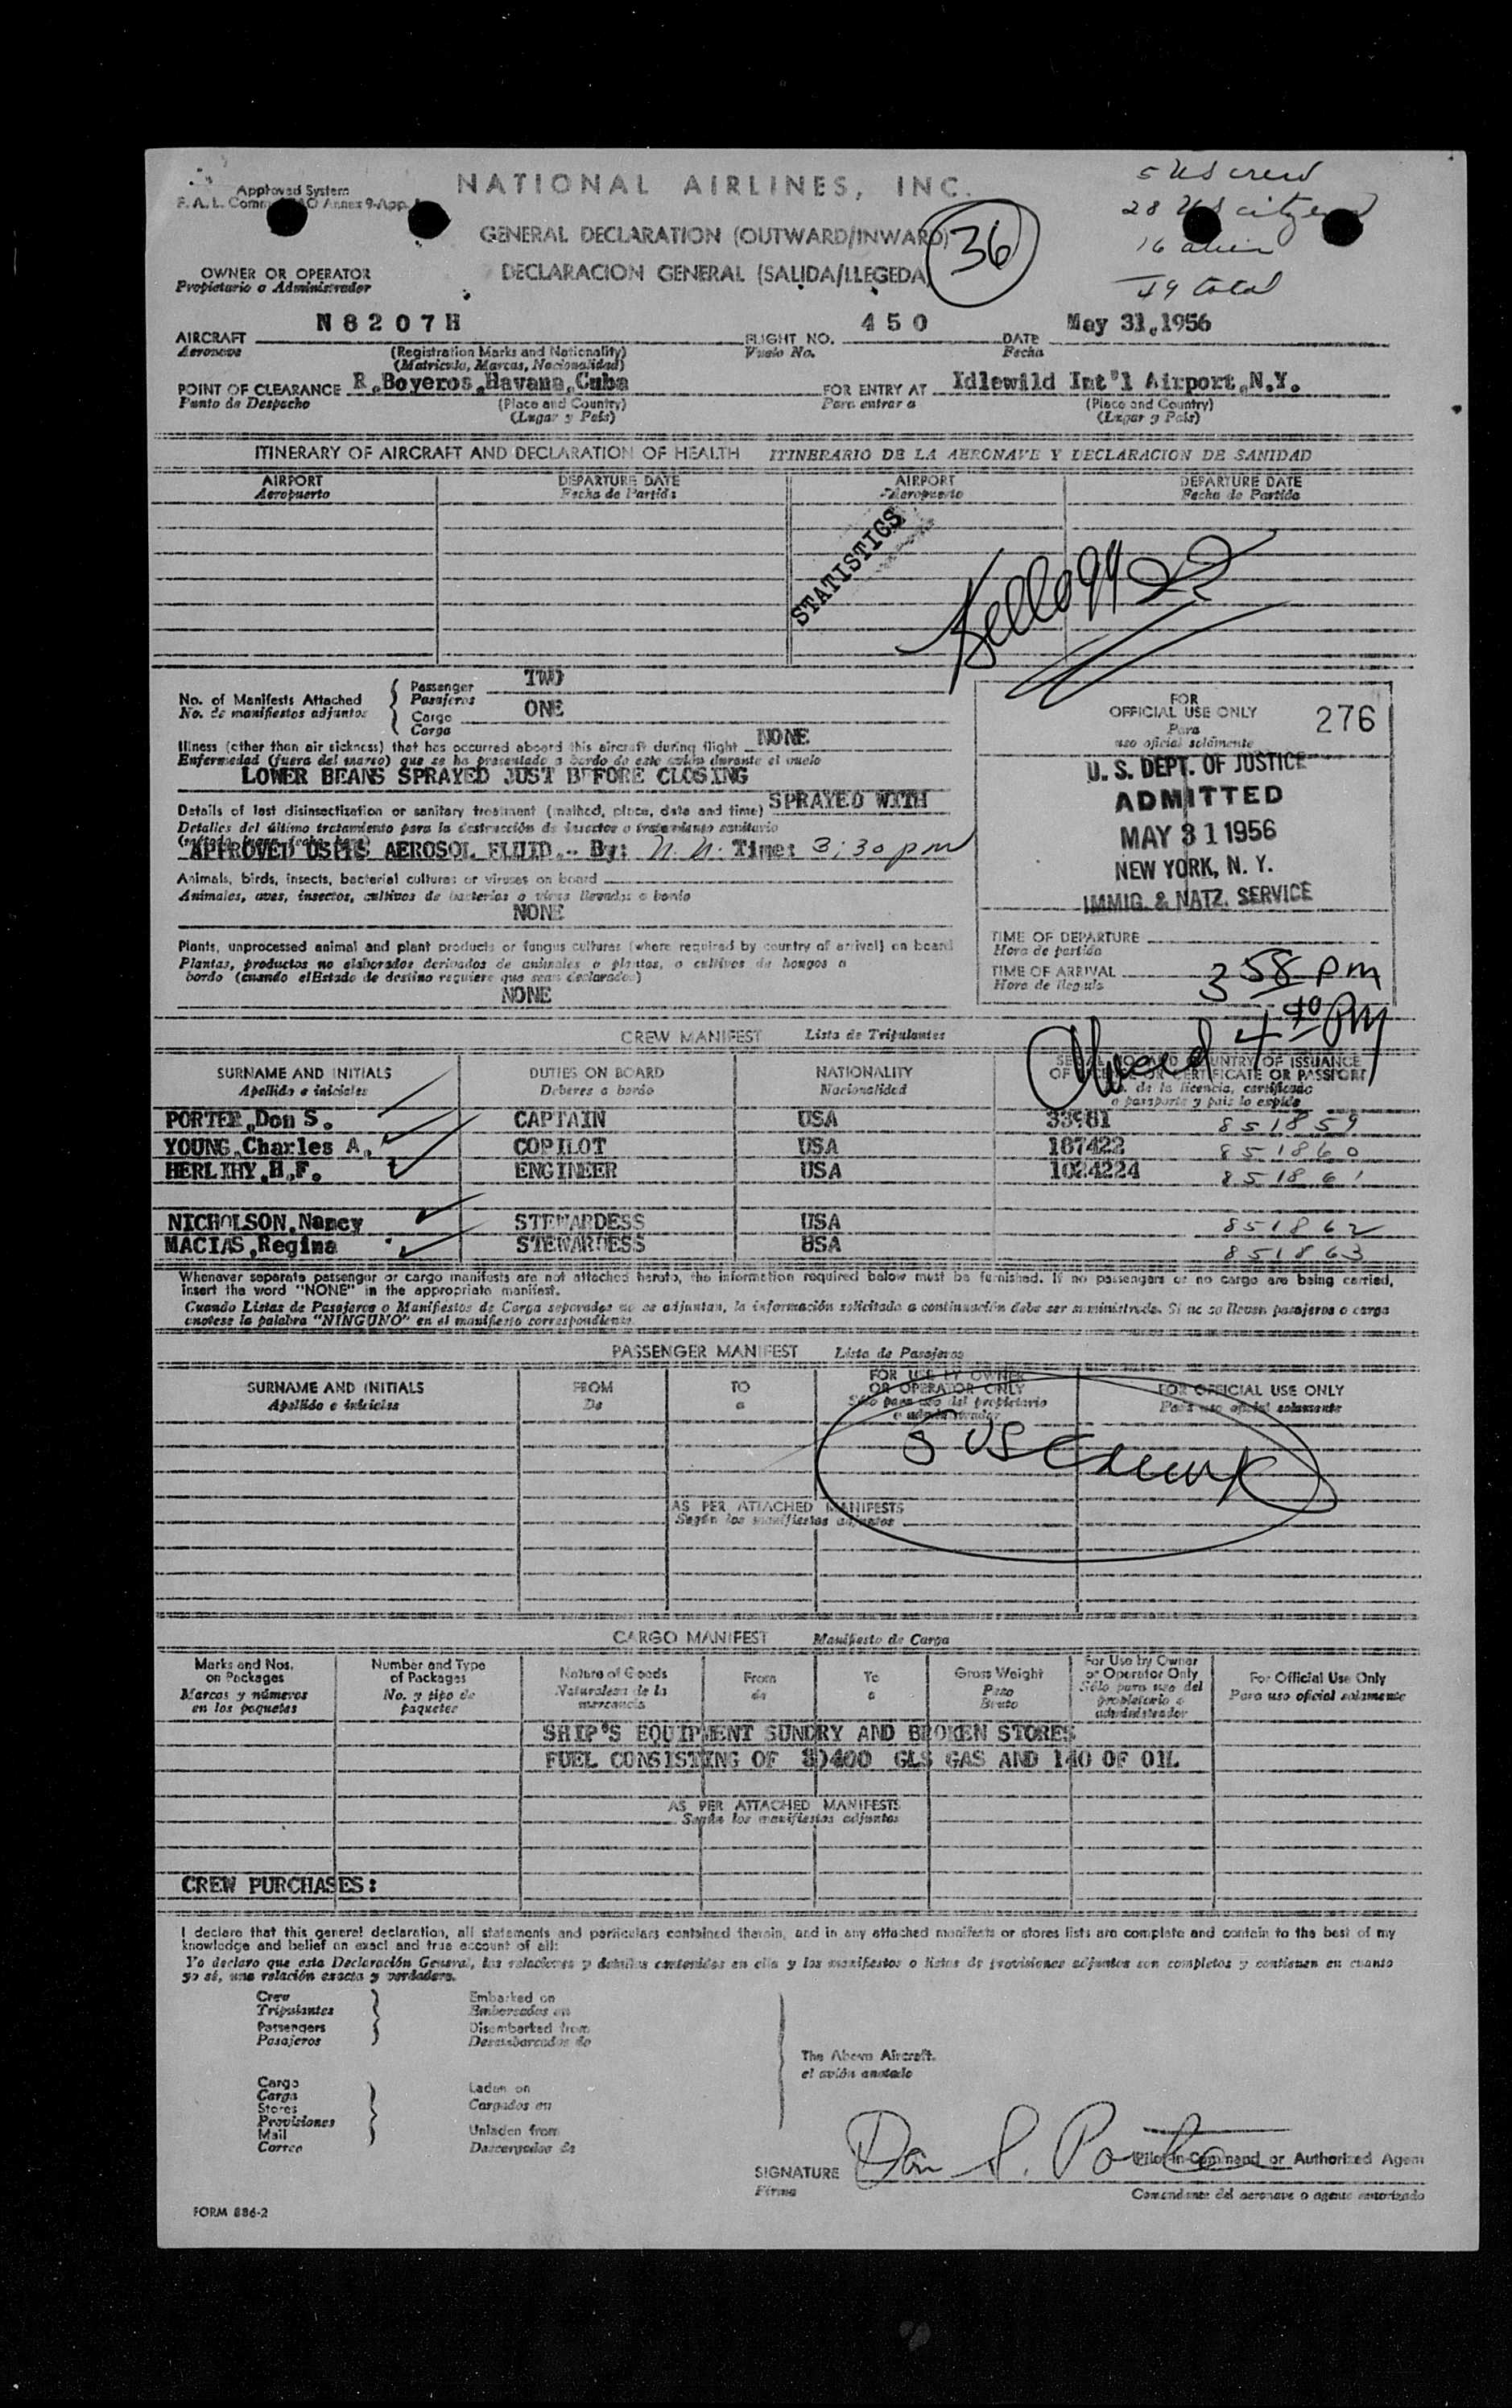 Approved System
NATIONAL AIRLINES, INC.
5 US crew
F. A. L. Annex 9-App.
28 US citizens
GENERAL DECLARATION (OUTWARD/INWARD)
36
16 alien
OWNER OR OPERATOR
DECLARACION GENERAL (SALIDA/LLEGEDA)
49 total
Propietario o Administrador
AIRCRAFT N8207H FLIGHT NO. 450 DATE May 31,1956
Aeronave (Registration Marks and Nationality) Vuelo No. Fecha
(Matricula, Marcas, Nacionalidad)
POINT OF CLEARANCE R.Boyeros,Havana,Cuba FOR ENTRY AT Idlewild Int'l Airport,N.Y.
Punto de Despacho (Place and Country) Para entrar a (Place and Country)
(Lugar y País) (Lugar y País)
ITINERARY OF AIRCRAFT AND DECLARATION OF HEALTH ITINERARIO DE LA AERONAVE Y DECLARACION DE SANIDAD
AIRPORT DEPARTURE DATE AIRPORT DEPARTURE DATE
Aeropuerto Fecha de Partida Aeropuerto Fecha de Partida
STATISTICS
Kellogg
No. of Manifests Attached
No. de manifiestos adjuntos
Passenger TWO
Pasajeros
Cargo ONE
Carga
Illness (other than air sickness) that has occurred aboard this aircraft during flight NONE
Enfermedad (fuera del mareo) que se ha presentado a bordo de este avión durante el vuelo
LOWER BEANS SPRAYED JUST BEFORE CLOSING
Details of last disinsectization or sanitary treatment (method, place, date and time) SPRAYED WITH
Detalles del último tratamiento para la destrucción de insectos o tratamiento sanitario
APPROVED USPHS AEROSOL FLUID.- By: N. N. Time: 3:30 pm
Animals, birds, insects, bacterial cultures or viruses on board
Animales, aves, insectos, cultivos de bacterias o virus llevados a bordo
NONE
Plants, unprocessed animal and plant products or fungus cultures (where required by country of arrival) on board
Plantas, productos no elaborados derivados de animales o plantas, o cultivos de hongos a
bordo (cuando elEstado de destino requiere que sean declarados)
NONE
FOR
OFFICIAL USE ONLY
276
Para
uso oficial solamente
U. S. DEPT. OF JUSTICE
ADMITTED
MAY 31 1956
NEW YORK, N. Y.
IMMIG. & NATZ. SERVICE
TIME OF DEPARTURE
Hora de partida
TIME OF ARRIVAL 3 58 pm
Hora de llegada
4 40 PM
CREW MANIFEST Lista de Tripulantes
SURNAME AND INITIALS DUTIES ON BOARD NATIONALITY SERIAL NO. AND COUNTRY OF ISSUANCE
OF LICENSE OR CERTIFICATE OR PASSPORT
Apellido e iniciales Deberes a bordo Nacionalidad de la licencia, certificado
o pasaporte y pais lo expide
PORTER,Don S. CAPTAIN USA 33981 851859
YOUNG,Charles A. COPILOT USA 167422 851860
HERLIHY,H.F. ENGINEER USA 1024224 851861
NICHOLSON,Nancy STEWARDESS USA 851862
MACIAS,Regina STEWARDESS USA 851863
Whenever separate passenger or cargo manifests are not attached hereto, the information required below must be furnished. If no passengers or no cargo are being carried,
insert the word "NONE" in the appropriate manifest.
Cuando Listas de Pasajeros o Manifiestos de Carga separados no se adjuntan, la información solicitada a continuación debe ser suministrada. Si no se llevan pasajeros o carga
anotese la palabra "NINGUNO" en el manifiesto correspondiente.
PASSENGER MANIFEST Lista de Pasajeros
SURNAME AND INITIALS FROM TO FOR USE BY OWNER
OR OPERATOR ONLY FOR OFFICIAL USE ONLY
Apellido e iniciales De a Sólo para uso del propietario
o administrador Para uso oficial solamente
5 US
AS PER ATTACHED MANIFESTS
Según los manifiestos adjuntos
CARGO MANIFEST Manifiesto de Carga
Marks and Nos.
on Packages
Marcas y números
en los paquetes
Number and Type
of Packages
No. y tipo de
paquetes
Nature of Goods
Naturaleza de la
mercancia
From
de
To
a
Gross Weight
Peso
Bruto
For Use by Owner
or Operator Only
Sólo para uso del
propietario o
administrador
For Official Use Only
Para uso oficial solamente
SHIP'S EQUIPMENT SUNDRY AND BROKEN STORES
FUEL CONSISTING OF GLS GAS AND 140 OF OIL
AS PER ATTACHED MANIFESTS
Según los manifiestos adjuntos
CREW PURCHASES:
I declare that this general declaration, all statements and particulars contained therein, and in any attached manifests or stores lists are complete and contain to the best of my
knowledge and belief an exact and true account of all:
Yo declaro que esta Declaración General, las relaciones y detalles contenidos en ella y los manifiestos o listas de provisiones adjuntos son completos y contienen en cuanto
yo sé, una relación exacta y verdadera.
Crew
Tripulantes
Passengers
Pasajeros
Embarked on
Embarcados en
Disembarked from
Desembarcados de
The Above Aircraft.
el avión anotado
Cargo
Carga
Stores
Provisiones
Mail
Correo
Laden on
Cargados en
Unladen from
Descargados de
SIGNATURE Don S. Porter Pilot-in-Command or Authorized Agent
Firma Comandante del aeronave o agente autorizado
FORM 886-2